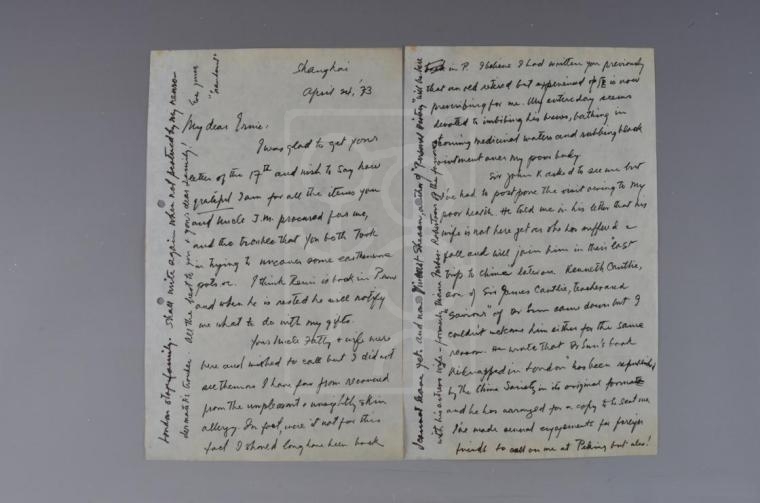 Shanghai
April 24, '73
My dear Ernie:
I was glad to get your
letter of the 17th and wish to say how
grateful I am for all the items you
and Uncle J.M. procured for me,
and the trouble that you both took
in trying to uncover some earthenware
pots or. I think Remi is back in
and when he is rested he will notify
me what to do with my gifts.
Your Uncle & wife were
here and wished to call but I did not
see them as I have far from recovered
from the unpleasant & unsightly skin
allergy. In fact, were it not for this
fact I should long have been back
in P. I believe I had written you previously
that an old retired but experienced is now
prescribing for me. My entire day seems
devoted to imbibing his brews, bathing in
foaming medicinal waters and rubbing black
ointment over my poor body
Sir John K asked to see me but
I've had to postpone the visit owing to my
poor health. He told me in his letter that his
wife is not here yet as she has suffered a
fall and will join him in this last
trip to China later on. Kenneth Cantlie,
son of Sir James Cantlie, teacher and
"saviour" of Dr Sun came down but I
couldn't welcome him either for the same
reason. He wrote that Dr Sun's book
Kidnapped in London" has been reprinted
by the China Society in its original format
and he has arranged for a copy to be sent me
I've made several engagements for foreign
friends to call on me at Peking but alas!
I cannot leave yet. and now Vincent Sheean, author of "Personal History" will be here
with his actress wife - formerly Diana Forbes-Robertson of the famous
London stage family. Shall write again when not pestered by my
dermatitis trouble. All the best to you & your dear family!